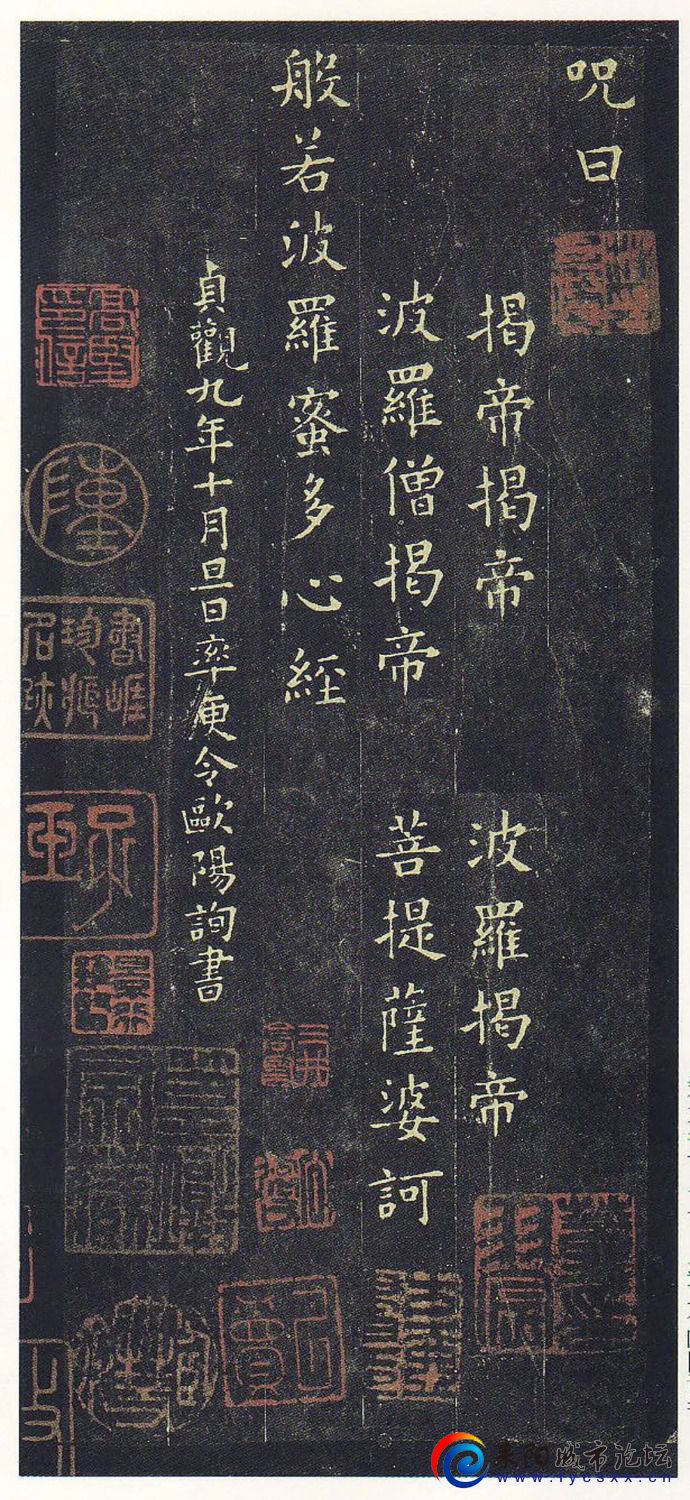 呪曰
揭帝揭帝 波羅揭帝
波羅僧揭帝 菩提薩婆訶
般若波羅蜜多心經
貞觀九年十月旦日率更令歐陽詢書
耒阳城市论坛
www.lycsxx.cn